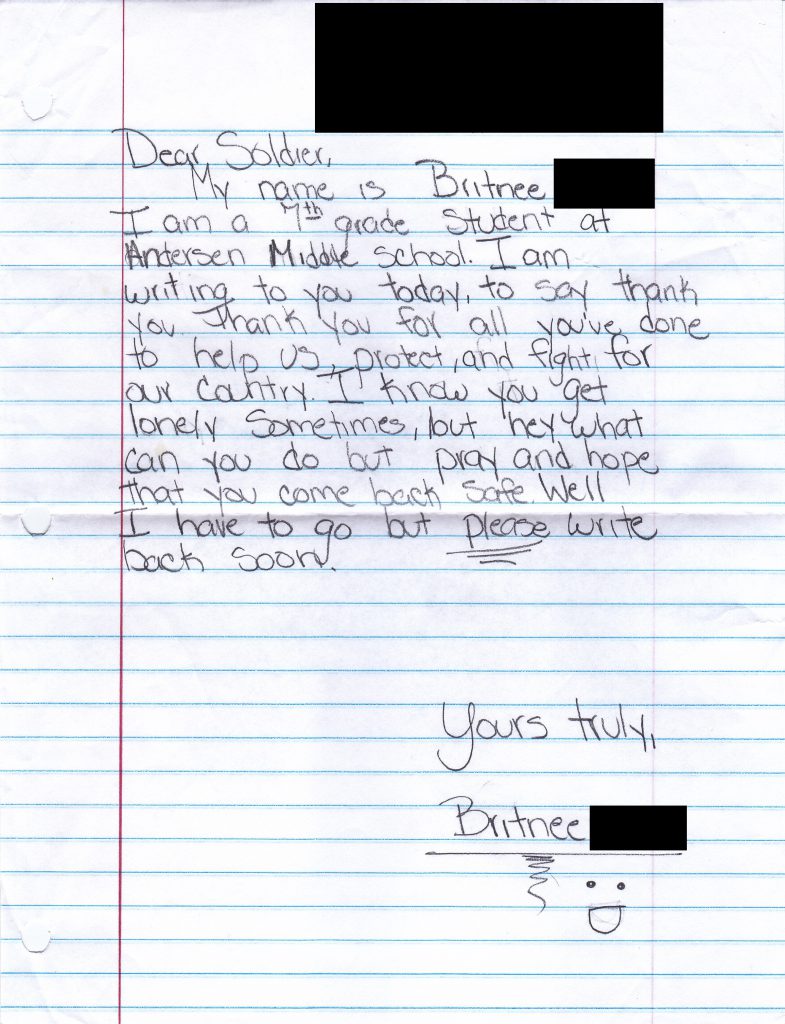 Dear Soldier,
My name is Britnee
I am a 7th grade student at
Andersen Middle school. I am
writing to you today, to say thank
you. Thank you for all you've done
to help us, protect, and fight for
our country. I know you get
lonely sometimes, but hey what
can you do but pray and hope
that you come back safe. Well
I have to go but please write
back soon.
Yours truly,
Britnee